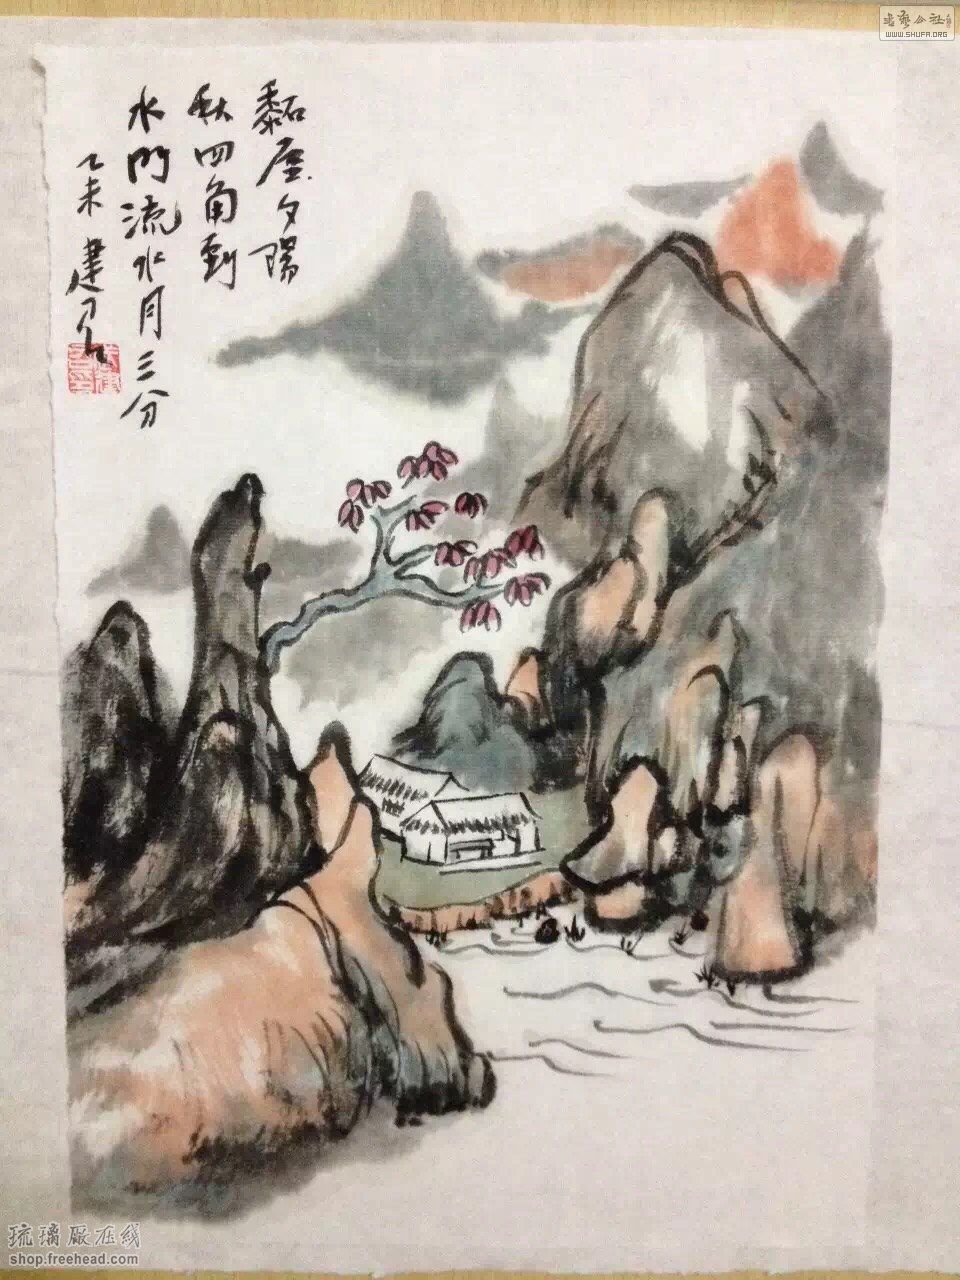 書藝公社
WWW.SHUFA.ORG
黏夕陽
秋四角到
水門流水月三分
乙未 建
琉璃厰在线
shop.freehead.com